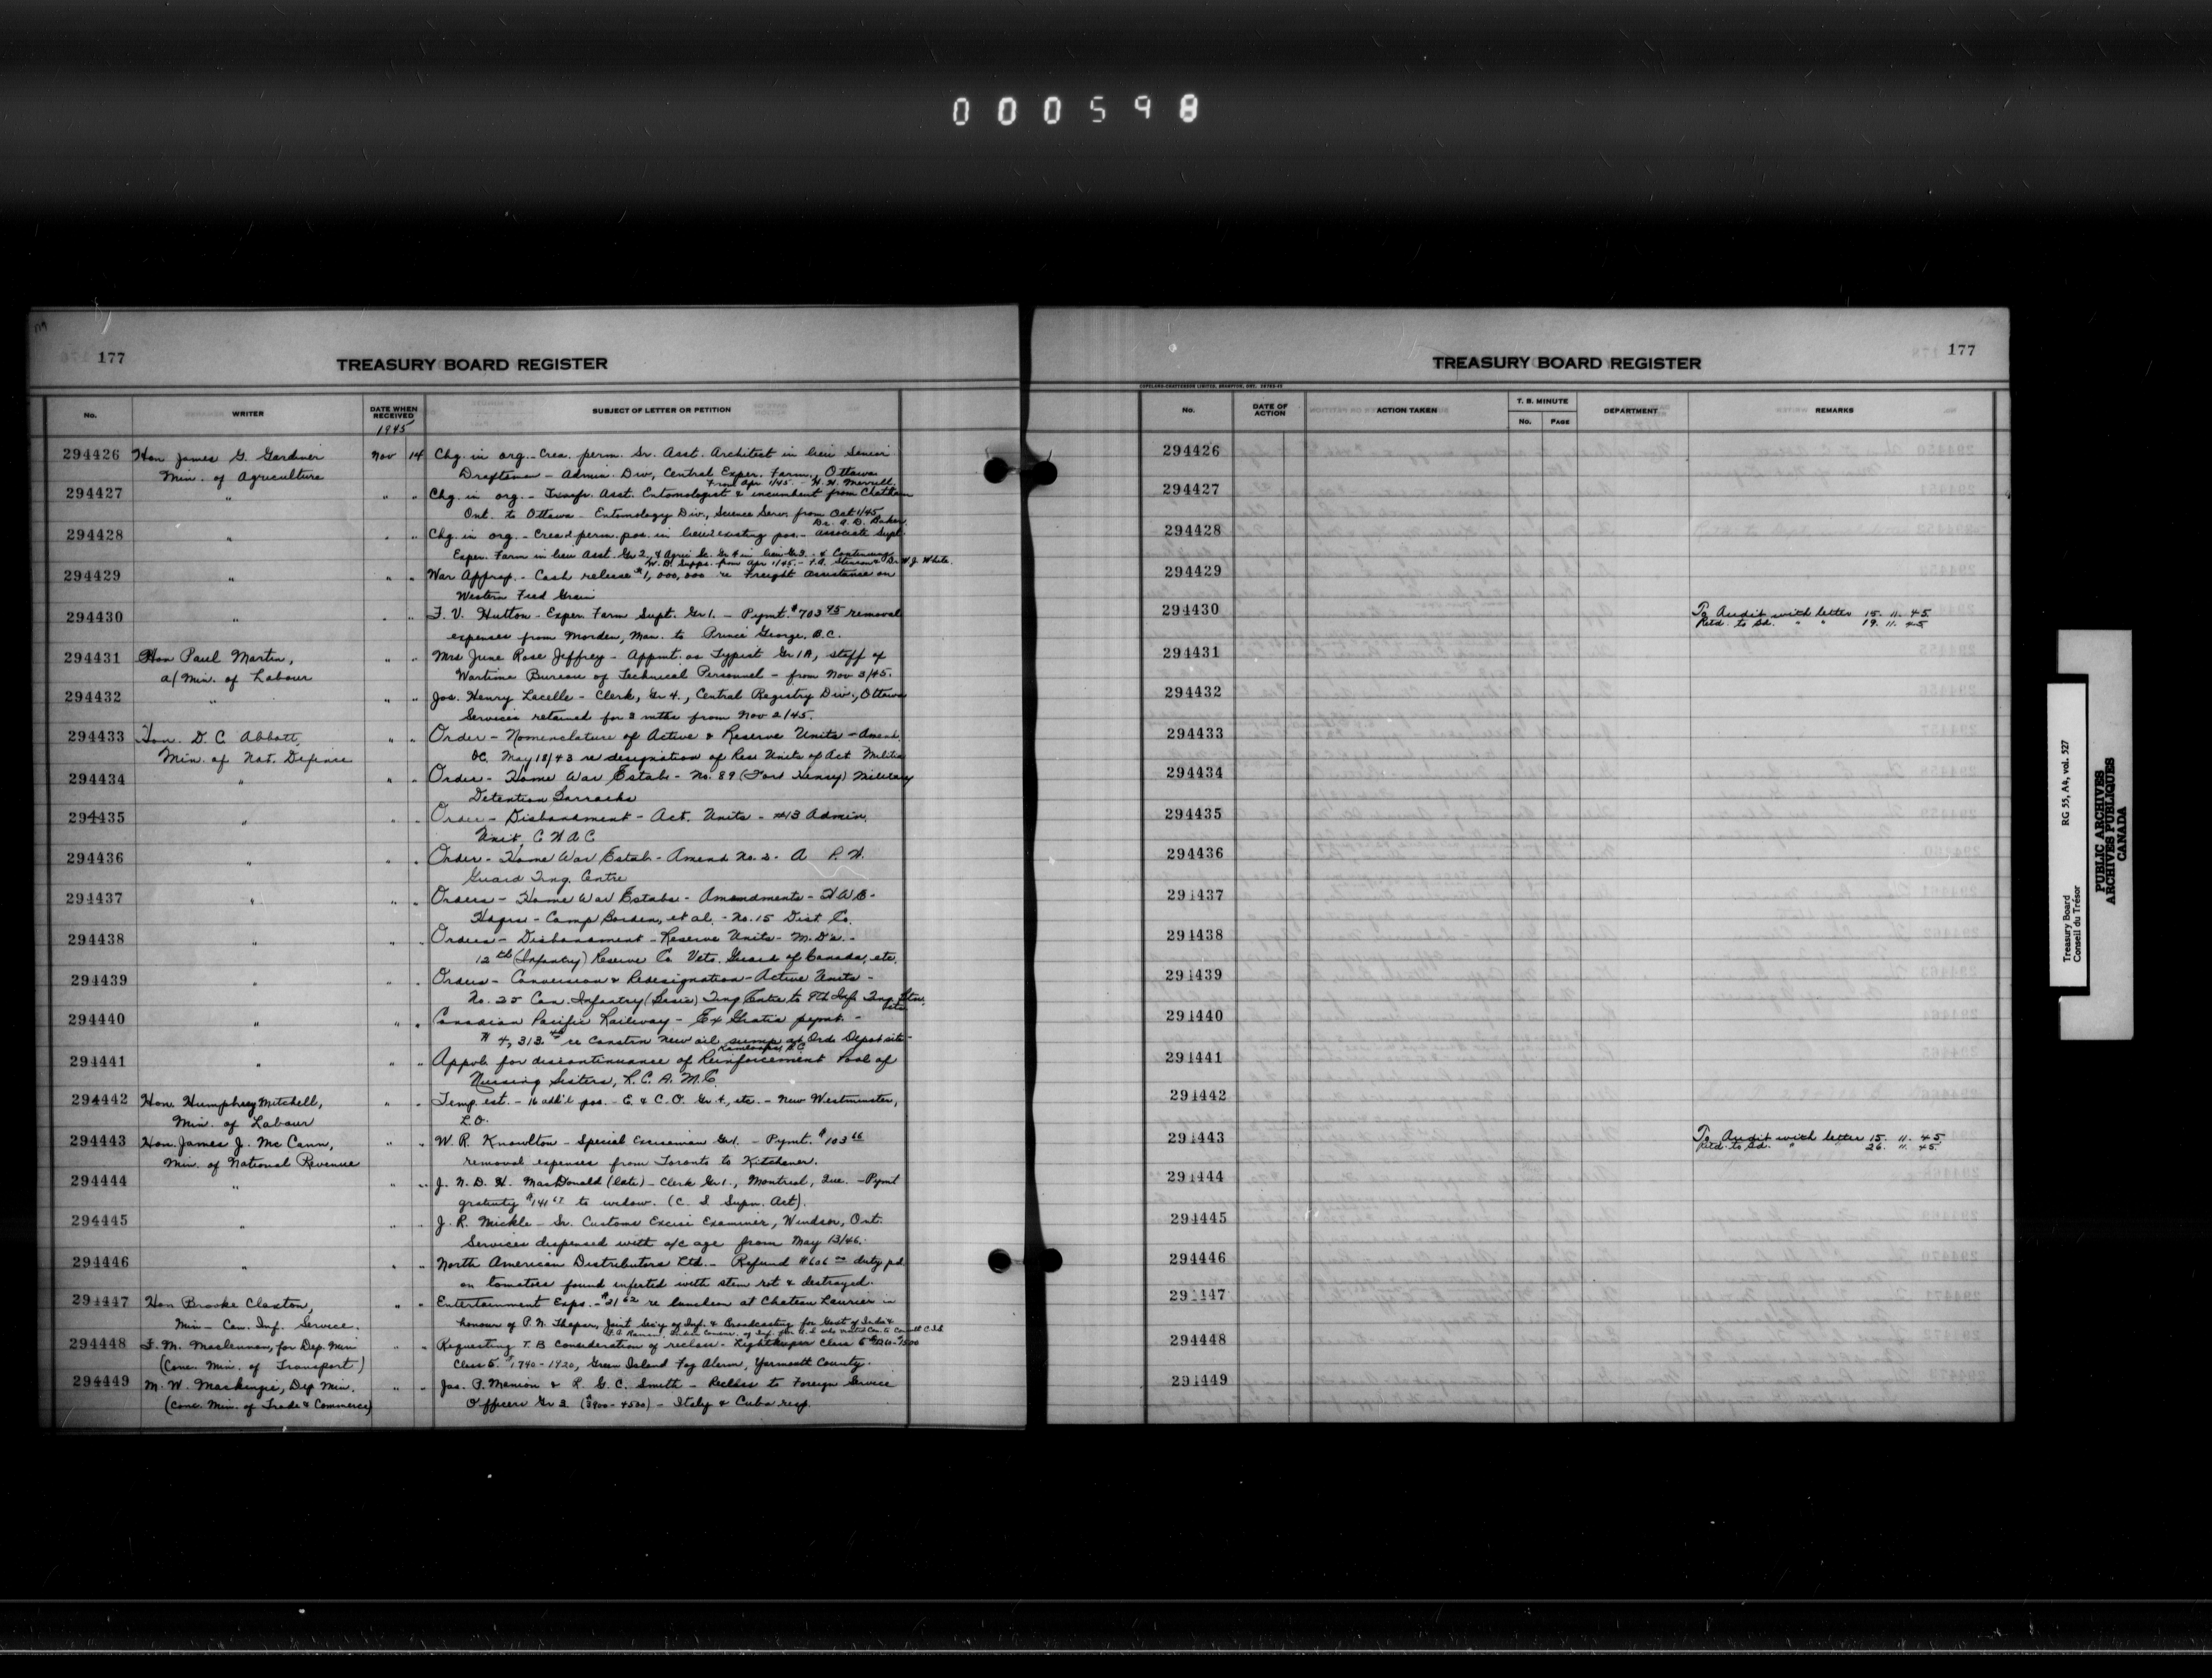 000598
177
TREASURY BOARD REGISTER
No. WRITER DATE WHEN RECEIVED SUBJECT OF LETTER OR PETITION
1945
294426 Hon James G. Gardiner Nov 14 Chg. in org. - Crea. perm. Sr. Asst. Architect in lieu Senior
Min. of Agriculture Draftsman - Admin. Div, Central Exper. Farm, Ottawa
from Apr 1/45 - H. H. Merrill
294427 " " " Chg. in org. - Transfr. Asst. Entomologist & incumbent from Chatham
Ont. to Ottawa - Entomology Div., Science Serv. from Oct 1/45
Dr. A. D. Baker
294428 " " " Chg. in org. - Crea perm. pos. in lieu existing pos. - Associate Supt
Exper. Farm in lieu Asst. Gr 2, & Agric Sc. Gr 4 in lieu Gr 3. & Continuing
W. D. Supps. from Apr 1/45. - & Dr. W. J. White.
294429 " " " War Approp. - Cash release $1,000,000 re Freight Assistance on
Western Feed Grain
294430 " " " F. V. Hutton - Exper. Farm Supt. Gr 1. - Pymt. $703 45 removal
expenses from Morden, Man. to Prince George, B.C.
294431 Hon Paul Martin, " " Mrs June Rose Jeffrey - Appmt. as Typist Gr 1A, staff of
a/ Min. of Labour Wartime Bureau of Technical Personnel - from Nov 3/45.
294432 " " " Jos. Henry Lacelle - Clerk, Gr 4., Central Registry Div., Ottawa
Services retained for 3 mths from Nov 2/45.
294433 Hon. D. C. Abbott, " " Order - Nomenclature of Active & Reserve Units - Amend.
Min. of Nat. Defence OC. May 18/43 re designation of Res Units of Act Militia
294434 " " " Order - Home War Estab. - No. 89 (Fort Henry) Military
Detention Barracks
294435 " " " Order - Disbandment - Act. Units - #13 Admin.
Unit, C W A C
294436 " " " Order - Home War Estab - Amend No. 2 - A P. W.
Guard Tng. Centre
294437 " " " Orders - Home War Estabs - Amendments - H W E -
Hdqrs - Camp Borden, et al. - No. 15 Dist Co.
294438 " " " Orders - Disbandment - Reserve Units - M. D's. -
12th (Infantry) Reserve Co Vets. Guard of Canada, etc.
294439 " " " Orders - Conversion & Redesignation - Active Units -
No. 25 Can. Infantry (Basic) Tng Centre to 9th Inf. Tng Bttn.
294440 " " " Canadian Pacific Railway - Ex Gratia pymt. -
$4,313. re Constrn new oil sump at Ord. Depot site -
Kamloops, B.C.
294441 " " " Appvl. for discontinuance of Reinforcement Pool of
Nursing Sisters, R. C. A. M. C.
294442 Hon. Humphrey Mitchell, " " Temp est. - 16 addt'l pos. - E. & C. O. Gr 4, etc. - New Westminster,
Min. of Labour L.O.
294443 Hon. James J. McCann, " " W. R. Knowlton - Special Exciseman Gr 1. - Pymt. $103 66
Min. of National Revenue removal expenses from Toronto to Kitchener.
294444 " " " J. N. D. H. MacDonald (late) - Clerk Gr 1., Montreal, Que. - Pymt
gratuity $141 67 to widow. (C. S Supn. Act).
294445 " " " J. R. Mickle - Sr. Customs Excise Examiner, Windsor, Ont.
Services dispensed with a/c age from May 13/46.
294446 " " " North American Distributors Ltd. - Refund $606 duty pd
on tomatoes found infested with stem rot & destroyed.
294447 Hon Brooke Claxton, " " Entertainment Exps. - $21 62 re luncheon at Chateau Laurier in
Min - Can. Inf. Service. honour of P. N. Thapar, Joint Sec'y of Inf. & Broadcasting for Govt of India &
294448 F. M. Maclennan, for Dep. Min " " Requesting T. B Consideration of reclass. - Lightkeeper Class 6
(Conc. Min. of Transport) Class 5 $1740 - 1920, Green Island Fog Alarm, Yarmouth County.
294449 M. W. Mackenzie, Dep Min. " " Jas. P. Manion & R. G. C. Smith - Reclass to Foreign Service
(Conc. Min. of Trade & Commerce) Officers Gr 3 ($3900 - 4500) - Italy & Cuba resp.
177
TREASURY BOARD REGISTER
COPELAND-CHATTERSON LIMITED, BRAMPTON, ONT.
No. DATE OF ACTION ACTION TAKEN T. B. MINUTE No. PAGE DEPARTMENT REMARKS
294426
294427
294428
294429
294430 To Audit with letter 15. 11. 45
Retd. to Bd. " " 19. 11. 45
294431
294432
294433
294434
294435
294436
294437
294438
294439
294440
294441
294442
294443 To Audit with letter 15. 11. 45
Retd. to Bd. " 26. 11. 45
294444
294445
294446
294447
294448
294449
Treasury Board RG 55, A4, vol. 527
Conseil du Trésor
PUBLIC ARCHIVES
ARCHIVES PUBLIQUES
CANADA